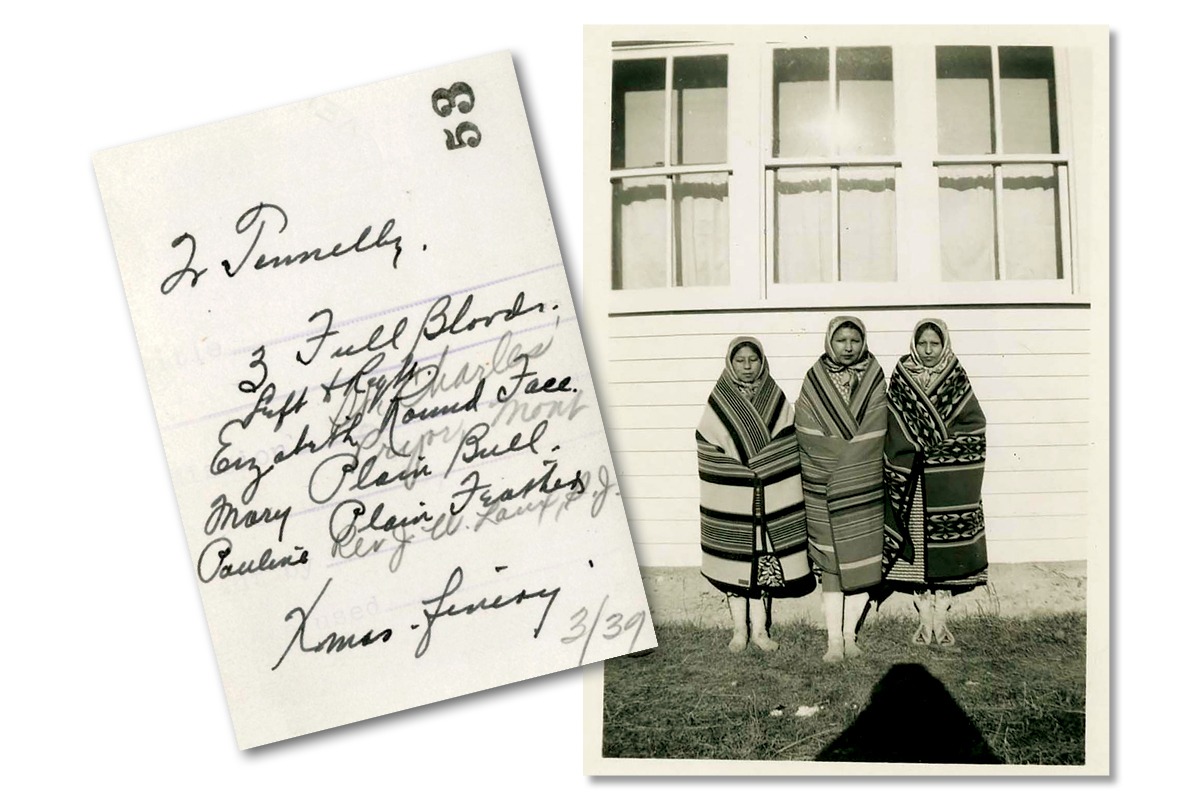 53
Fr Tennelly.
3 Full Bloods.
Left & Right
St. Charles,
Elizabeth Round Face.
Pryor, Mont
Mary Plain Bull.
Pauline Plain Feathers
Rev J. W. Laux, S.J.
used
Xmas - finery.
3/39